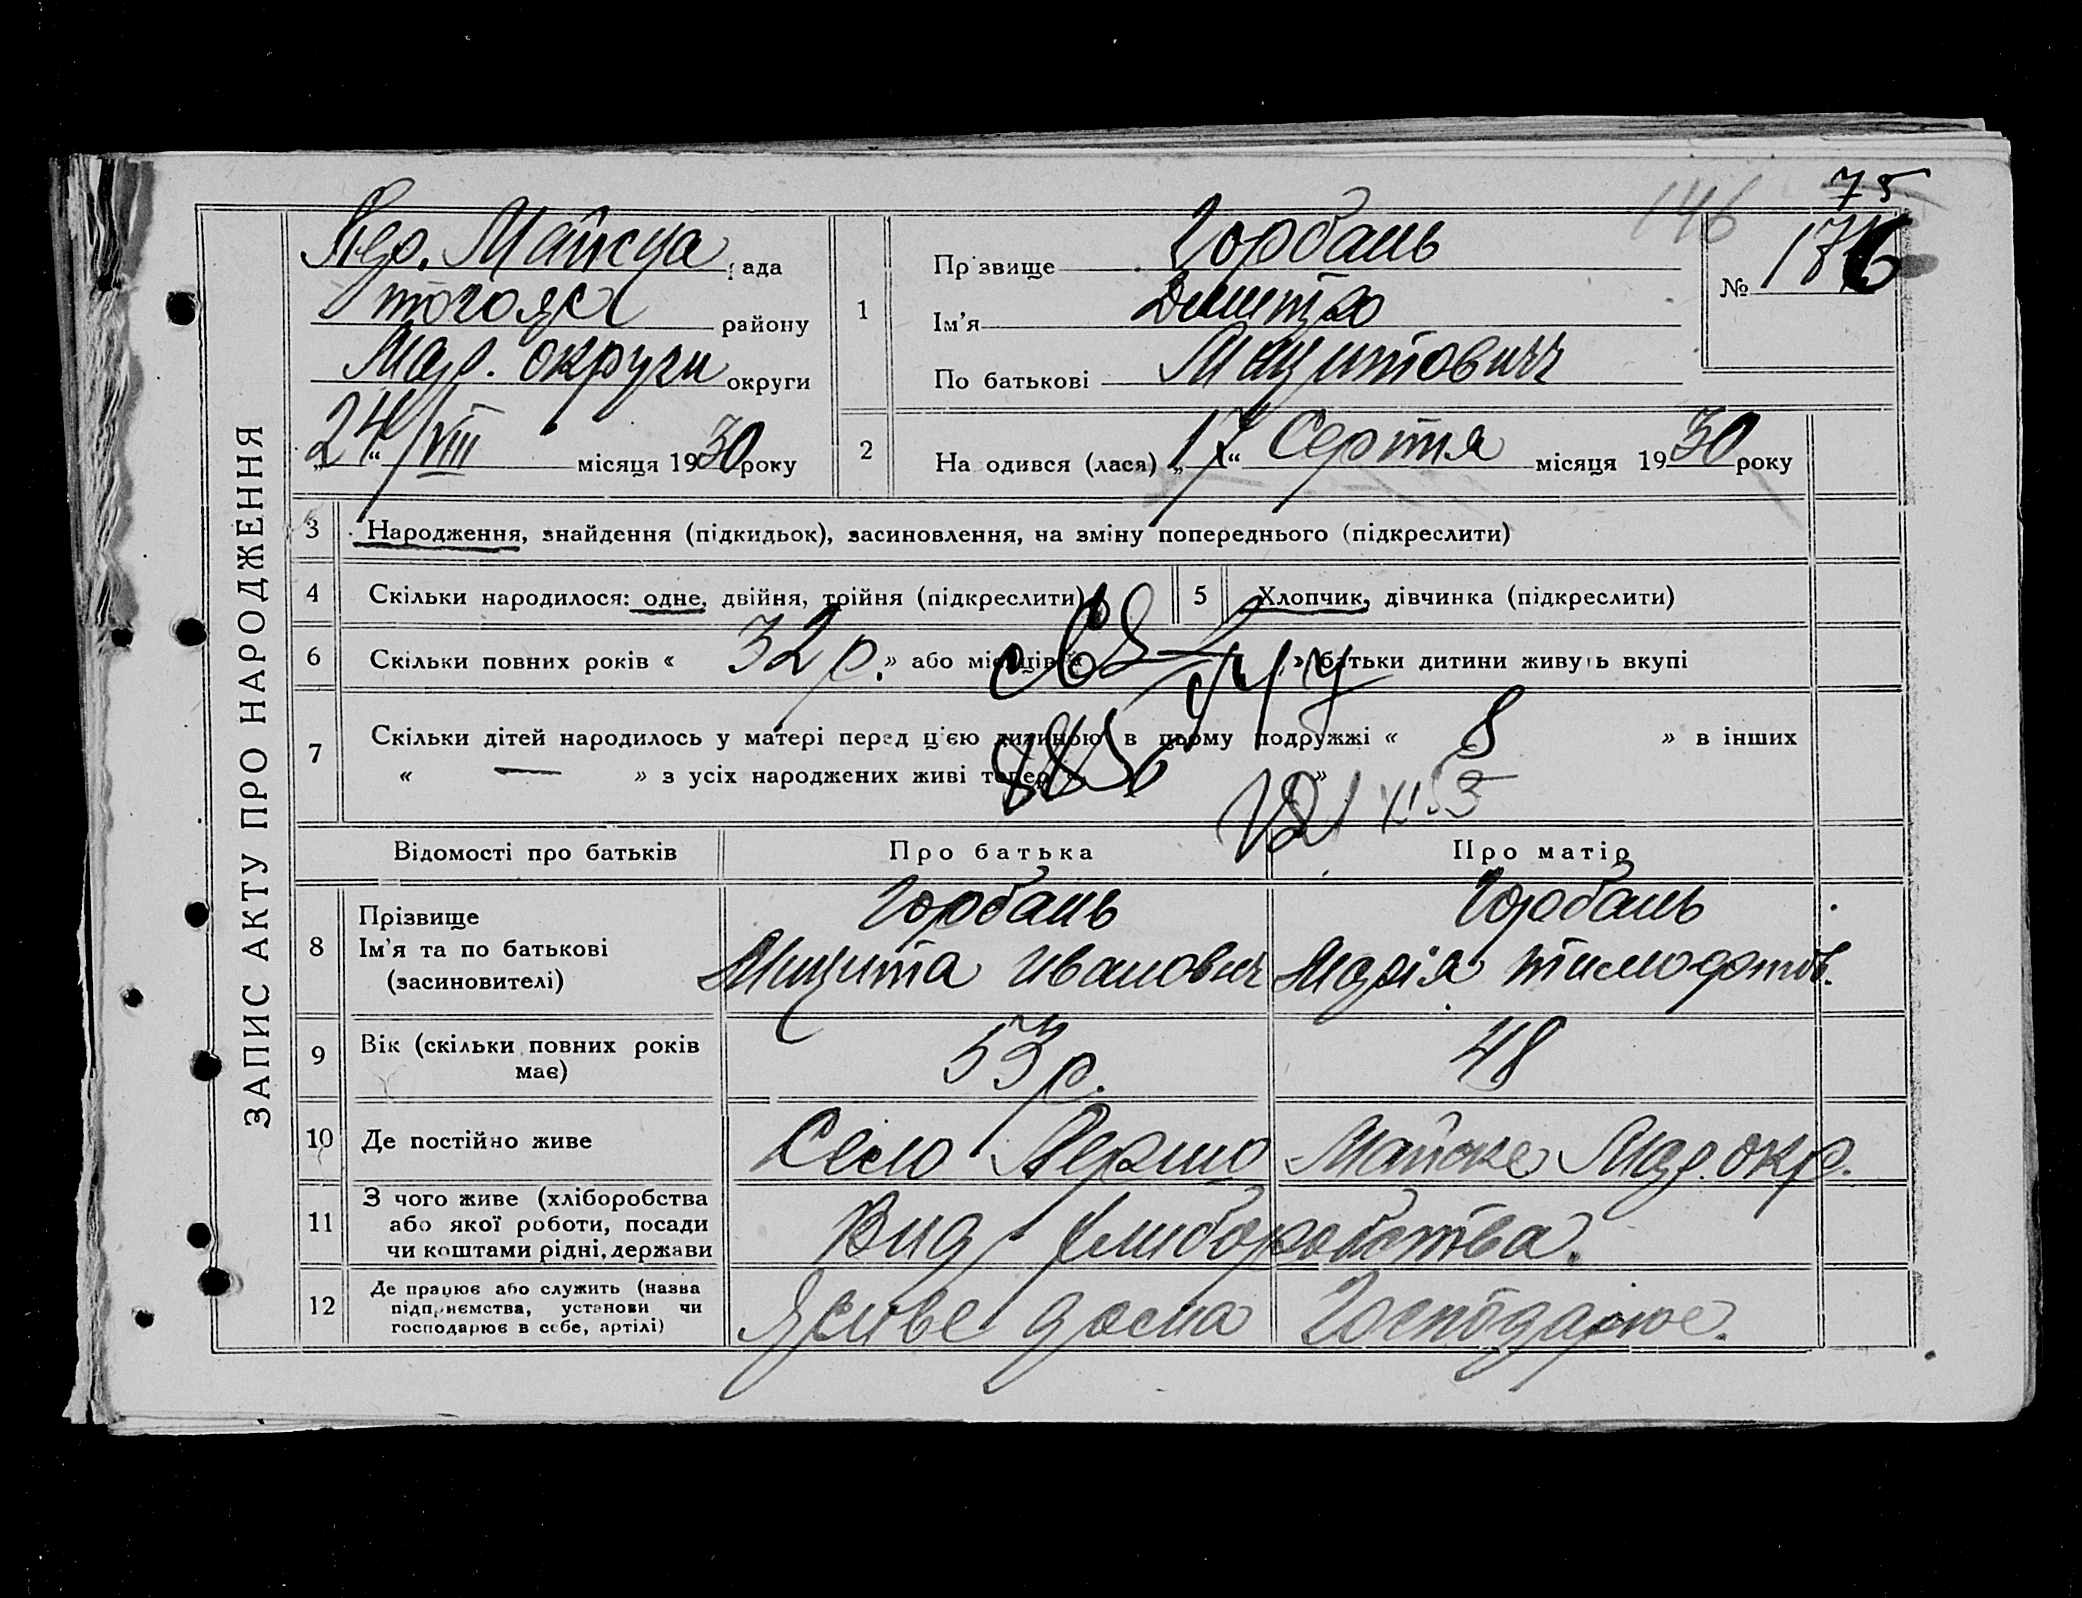 75
146
Пер. Майська рада
тогояс району
Мар. округи округи
„24“ VIII місяця 1930 року
1
Прізвище Горбань
Ім’я Дмитро
По батькові Мицитович
№ 176
2
Народився (лася) „17“ Серпня місяця 1930 року
ЗАПИС АКТУ ПРО НАРОДЖЕННЯ
3 Народження, знайдення (підкидьок), засиновлення, на зміну попереднього (підкреслити)
4 Скільки народилося: одне, двійня, трійня (підкреслити)
5 Хлопчик, дівчинка (підкреслити)
6 Скільки повних років « 32 р. » або місяців « » батьки дитини живуть вкупі
7 Скільки дітей народилось у матері перед цією дитиною в цьому подружжі « 8 » в інших
« — » з усіх народжених живі тепер « »
Відомості про батьків Про батька Про матір
8 Прізвище
Ім’я та по батькові
(засиновителі)
Горбань
Мицита Иванович
Горбань
Марія Тимофтов.
9 Вік (скільки повних років
має)
53 р. 48
10 Де постійно живе Село Першо Майське Мар. окр.
11 З чого живе (хліборобства
або якої роботи, посади
чи коштами рідні, держави
Вид хлиборобства.
12 Де працює або служить (назва
підприємства, установи чи
господарює в себе, артілі)
Живе дома Господарює.